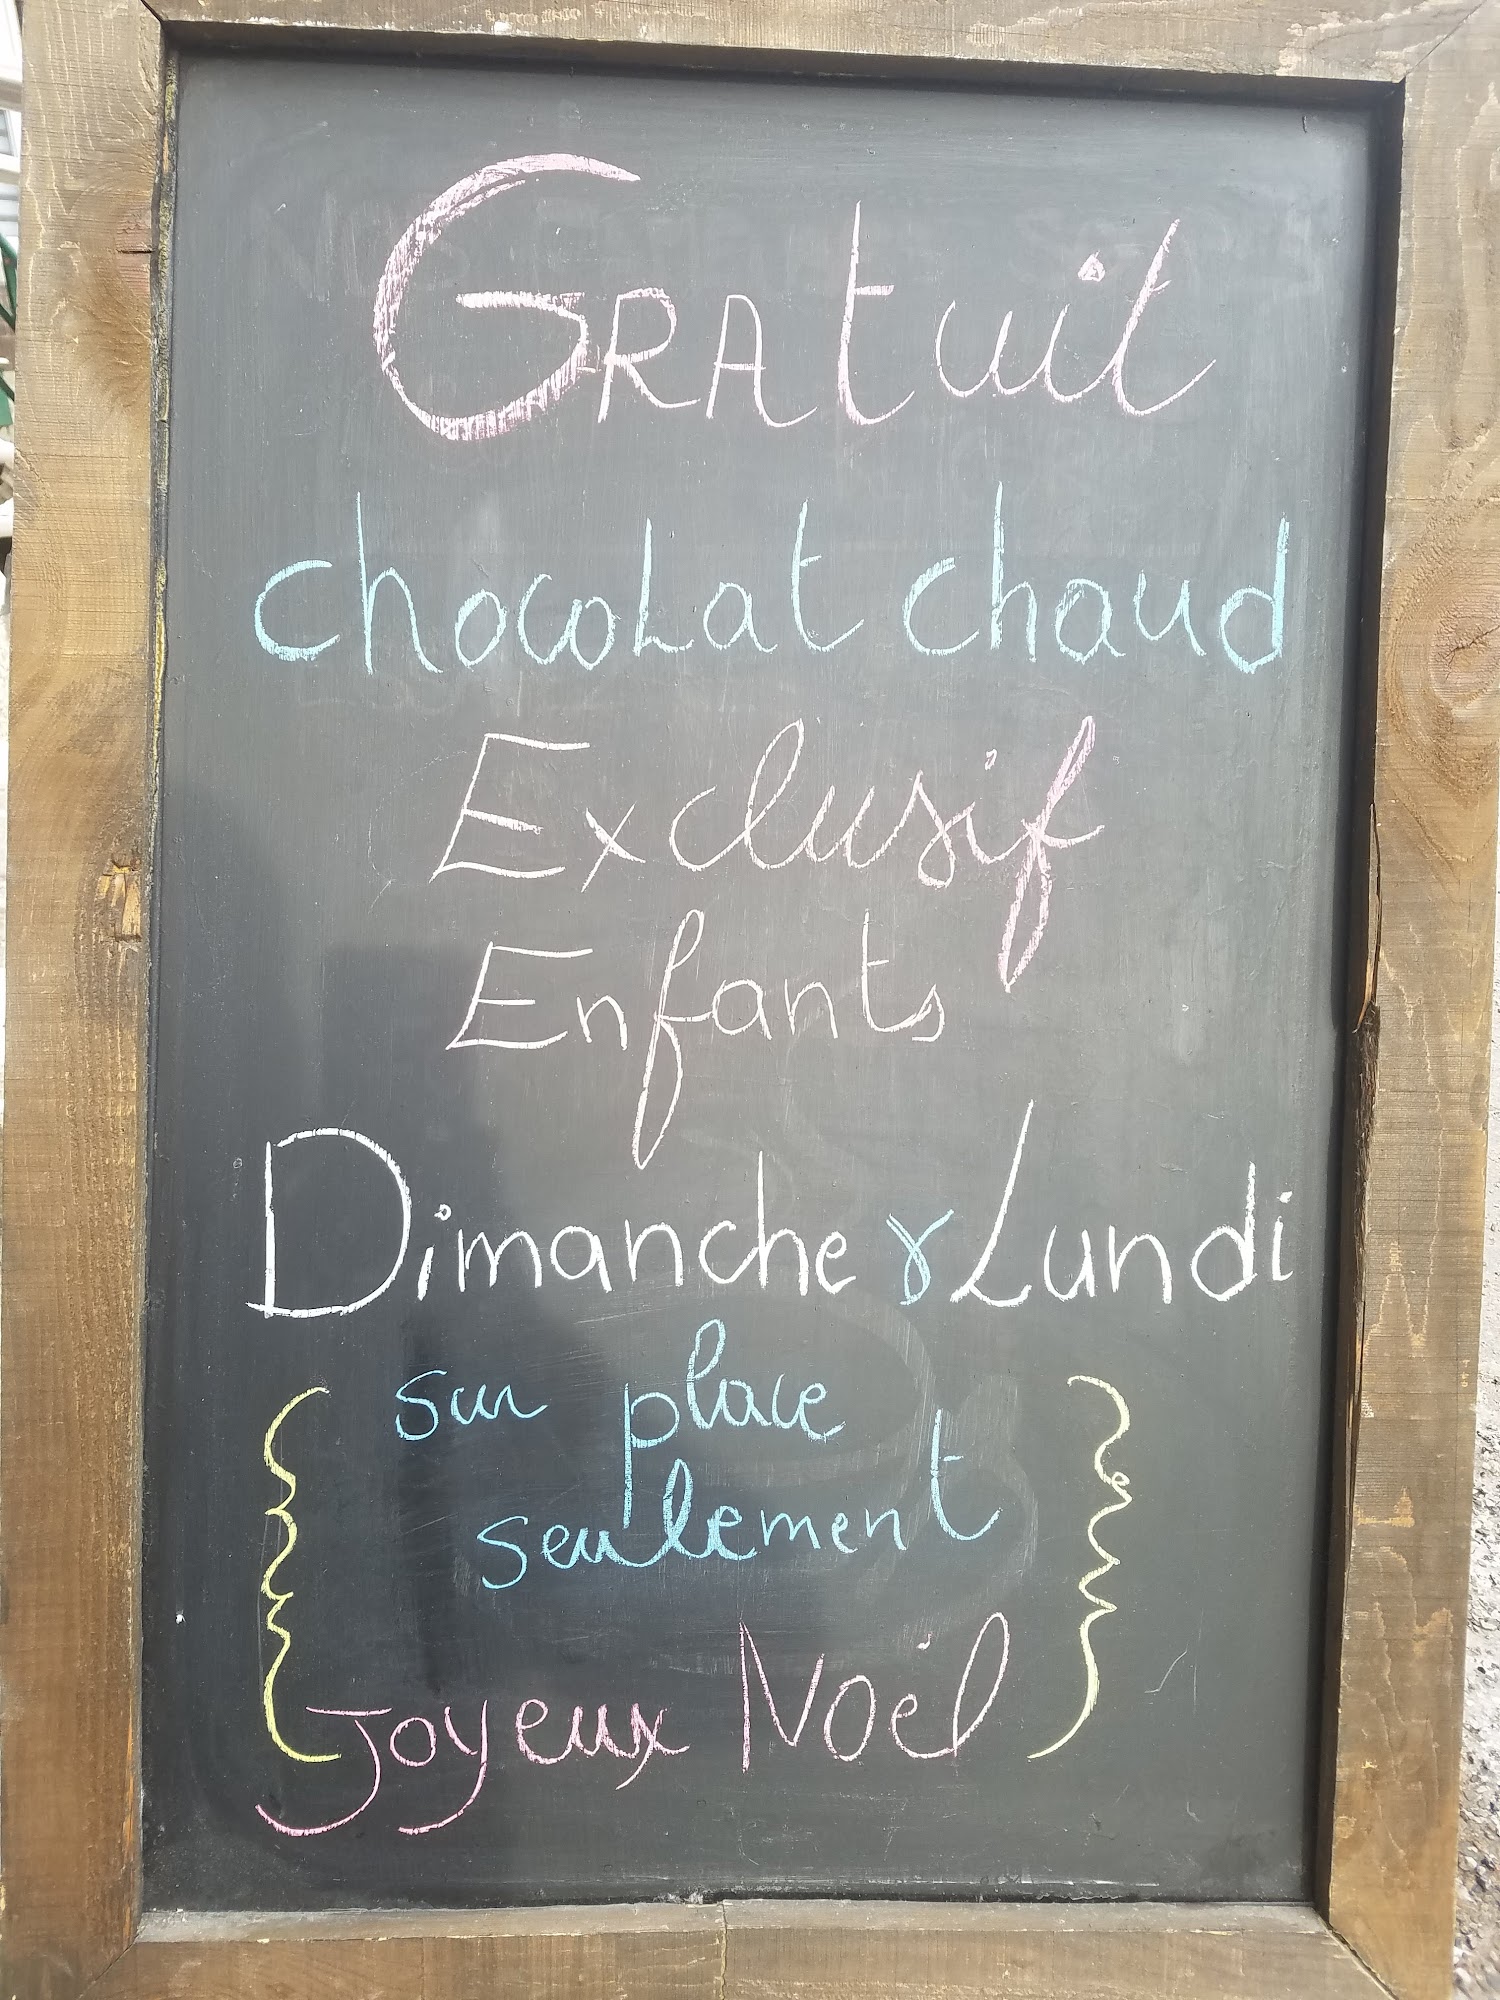 GRAtuit
chocoLat chaud
Exclusif
Enfants
Dimanche & Lundi
sur place
seulement
Joyeux Noël